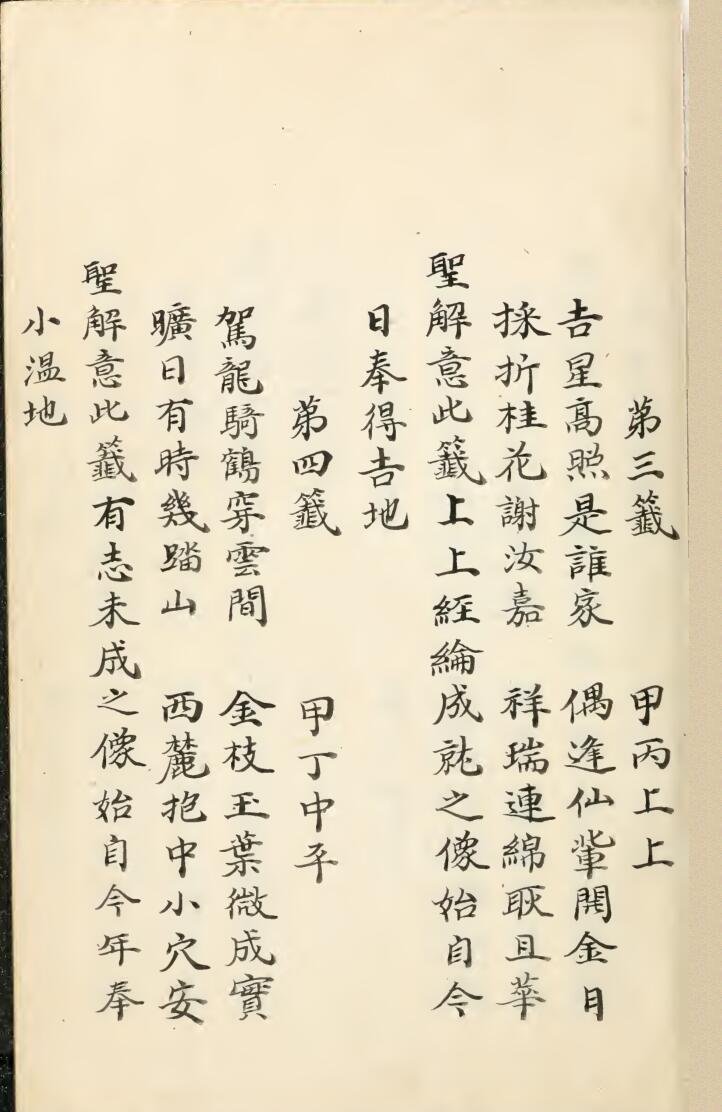 第三籤　甲丙上上
吉星髙照是誰家　偶逢仙輦開金日
採折桂花謝汝嘉　祥瑞連綿耿且華
聖解意此籤上上經綸成就之像始自今
日奉得吉地
第四籤　甲丁中平
駕龍騎鶴穿雲間　金枝玉葉微成實
曠日有時幾踏山　西麓抱中小穴安
聖解意此籤有志未成之像始自今年奉
小温地